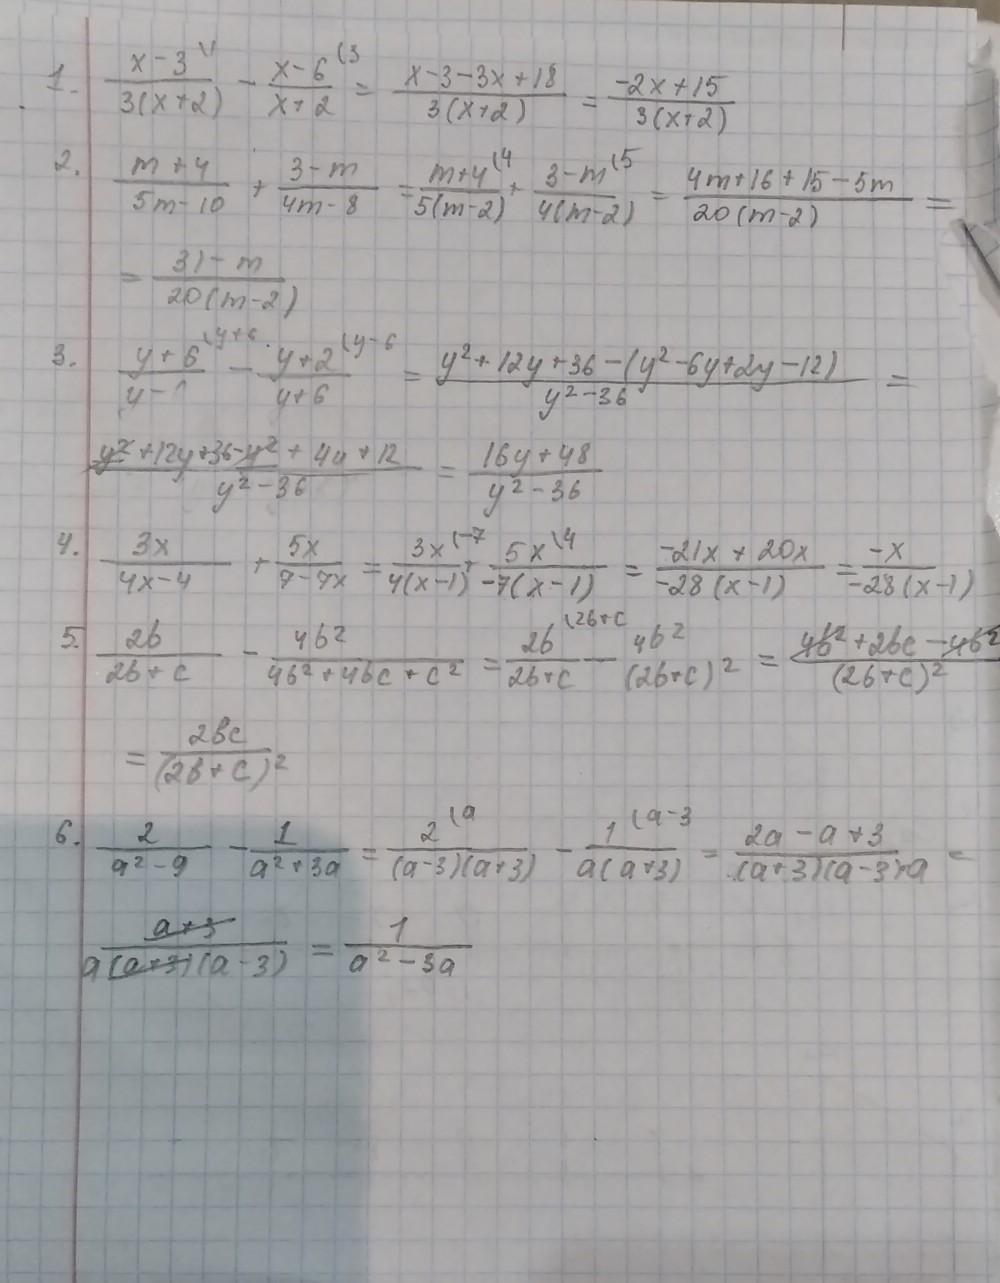 1. (x-3)/(3(x+2)) - (x-6)/(x+2) (3 = (x-3-3x+18)/(3(x+2)) = (-2x+15)/(3(x+2))
2. (m+4)/(5m-10) + (3-m)/(4m-8) = (m+4)/(5(m-2)) (4 + (3-m)/(4(m-2)) (5 = (4m+16+15-5m)/(20(m-2)) =
= (31-m)/(20(m-2))
3. (y+6)/(y-1) (y+6 - (y+2)/(y+6) (y-6 = (y²+12y+36-(y²-6y+2y-12))/(y²-36) =
(y²+12y+36-y²+4y+12)/(y²-36) = (16y+48)/(y²-36)
4. 3x/(4x-4) + 5x/(7-7x) = 3x/(4(x-1)) (-7 + 5x/(-7(x-1)) (4 = (-21x+20x)/(-28(x-1)) = -x/(-28(x-1))
5. 2b/(2b+c) - 4b²/(4b²+4bc+c²) = 2b/(2b+c) (2b+c - 4b²/(2b+c)² = (4b²+2bc-4b²)/(2b+c)²
= 2bc/(2b+c)²
6. 2/(a²-9) - 1/(a²+3a) = 2/((a-3)(a+3)) (a - 1/(a(a+3)) (a-3 = (2a-a+3)/((a+3)(a-3)·a) =
(a+3)/(a(a+3)(a-3)) = 1/(a²-3a)